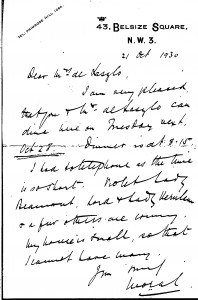 TEL: PRIMROSE HILL 1284.
43, BELSIZE SQUARE,
N.W. 3.
21 Oct 1930
Dear Mr de Laszlo
I am very pleased
that you & Mrs de Laszlo can
dine here on Tuesday next.
Oct 28. Dinner is at 8-15.
I had to telephone as the time
is so short. Violet Lady
Beaumont, Lord & Lady
& a few others are coming.
My house is small, so that
I cannot have many.